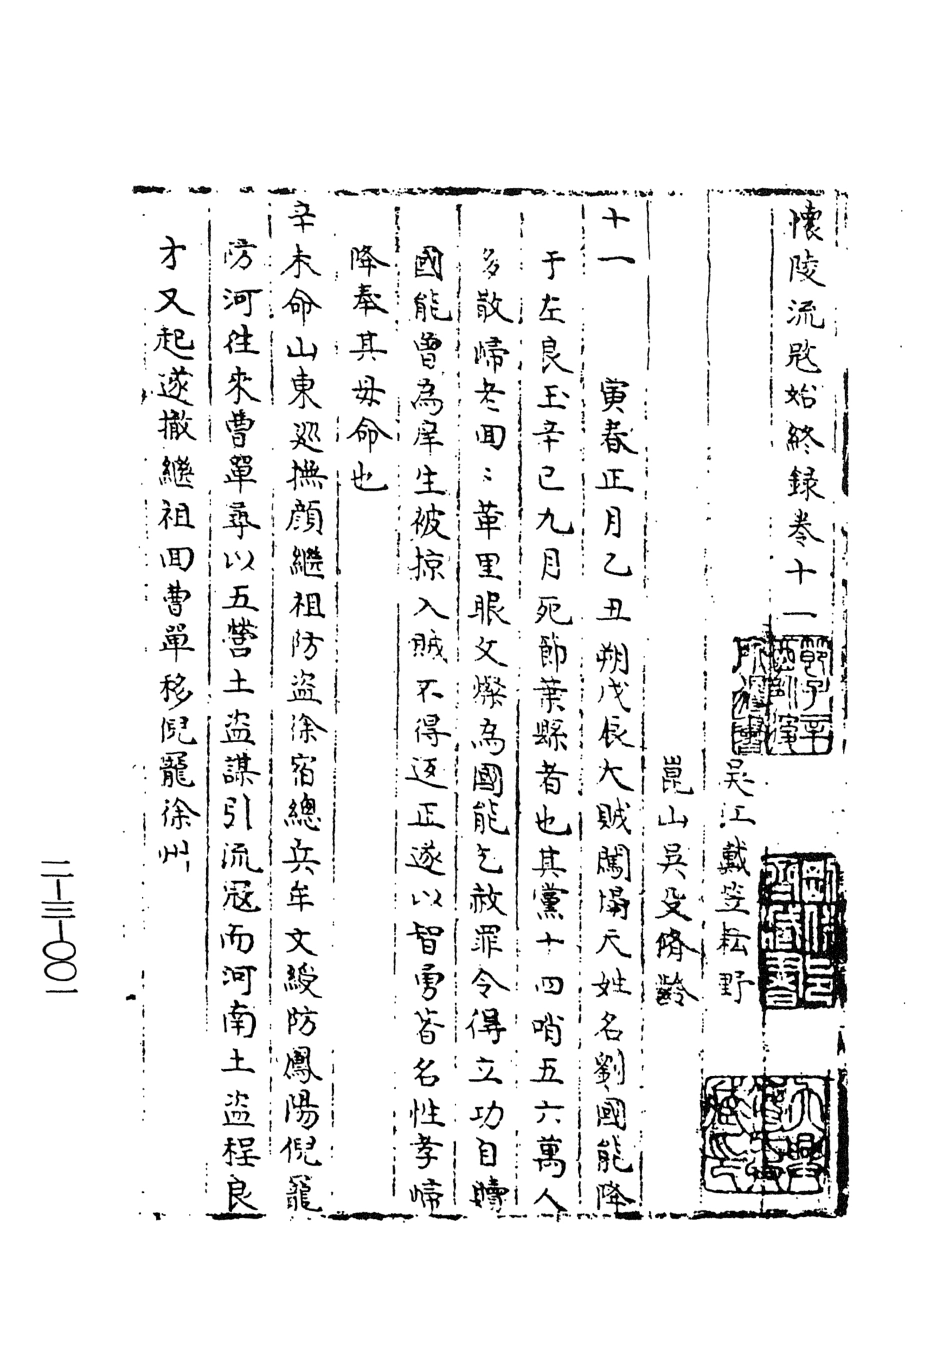 懷陵流寇始終録卷十一
吳江戴笠耘野
崑山吳殳脩齡
十一　寅春正月乙丑朔戊辰大賊闖塌天姓名劉國能降
于左良玉辛巳九月死節葉縣者也其黨十四哨五六萬人
多散帰老回〻革里眼文燦為國能乞赦罪令得立功自贖
國能曾為庠生被掠入賊不得返正遂以智勇著名性孝帰
降奉其母命也
辛未命山東廵撫顔繼祖防盗徐宿總兵牟文綬防鳳陽倪寵
防河往來曹單尋以五營土盗謀引流冦而河南土盗程良
才又起遂撤繼祖回曹單移倪寵徐州
二－三－〇〇一